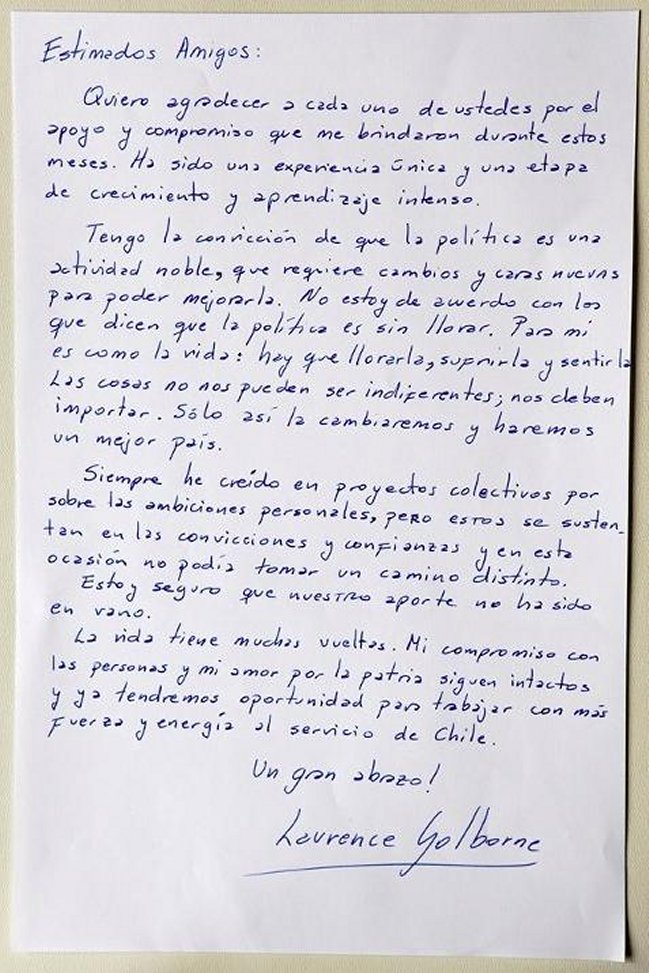 Estimados Amigos:
Quiero agradecer a cada uno de ustedes por el
apoyo y compromiso que me brindaron durante estos
meses. Ha sido una experiencia única y una etapa
de crecimiento y aprendizaje intenso.
Tengo la convicción de que la política es una
actividad noble, que requiere cambios y caras nuevas
para poder mejorarla. No estoy de acuerdo con los
que dicen que la política es sin llorar. Para mi
es como la vida: hay que llorarla, sufrirla y sentirla
Las cosas no nos pueden ser indiferentes; nos deben
importar. Sólo así la cambiaremos y haremos
un mejor país.
Siempre he creído en proyectos colectivos por
sobre las ambiciones personales, pero estos se susten-
tan en las convicciones y confianzas y en esta
ocasión no podía tomar un camino distinto.
Estoy seguro que nuestro aporte no ha sido
en vano.
La vida tiene muchas vueltas. Mi compromiso con
las personas y mi amor por la patria siguen intactos
y ya tendremos oportunidad para trabajar con más
fuerza y energía al servicio de Chile.
Un gran abrazo!
Laurence Golborne